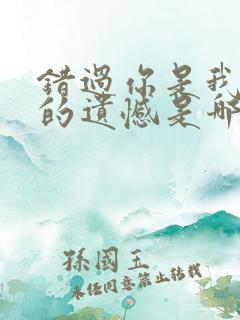 錯過你是我
的遺憾是哪
孫國玉
未經同意禁止轉載